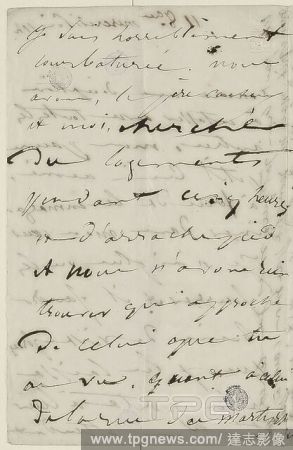 Je suis horriblement
courbaturée. nous
avons, le père
et moi, cherché
Des logements
pendant cinq heures
d'arrache pied
et nous n'avons rien
trouver qui approche
De celui que tu
as vu. quant à celui
De la rue Des Martyrs
www.tpgnews.com / 達志影像